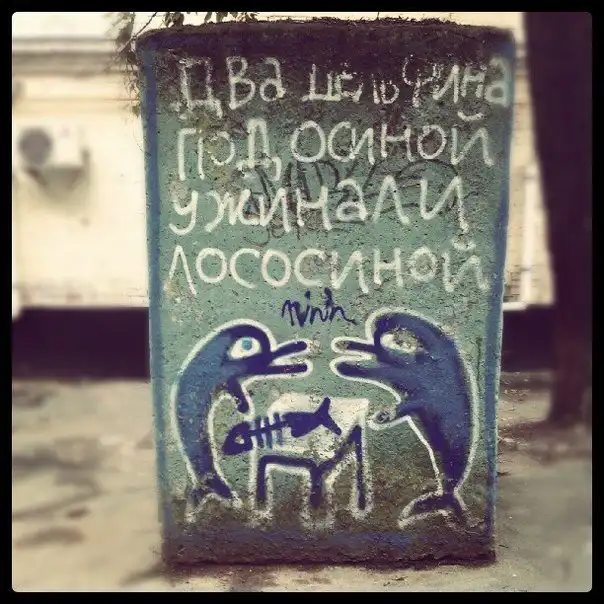 Два дельфина
под осиной
ужинали
лососиной